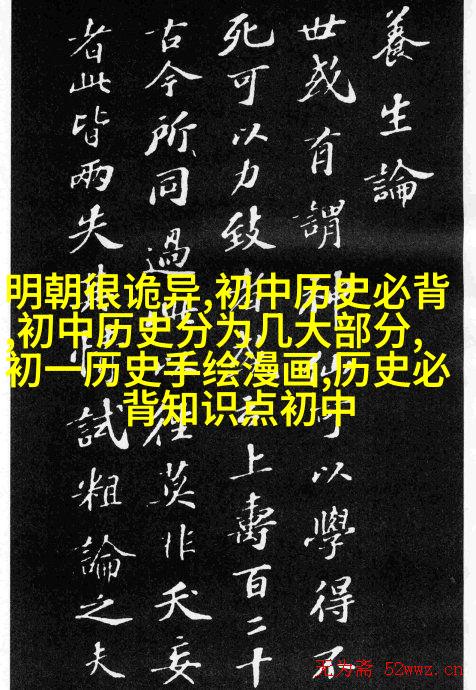 養生論
世或有謂神仙可以學得不
死可以力致者或云上壽百二十
古今所同過此以往莫非夭妄
者此皆兩失其情試粗論之夫
明朝很诡异,初中历史必背
,初中历史分为几大部分,
初一历史手绘漫画,历史必
背知识点初中
无为斋 52wwz.cn